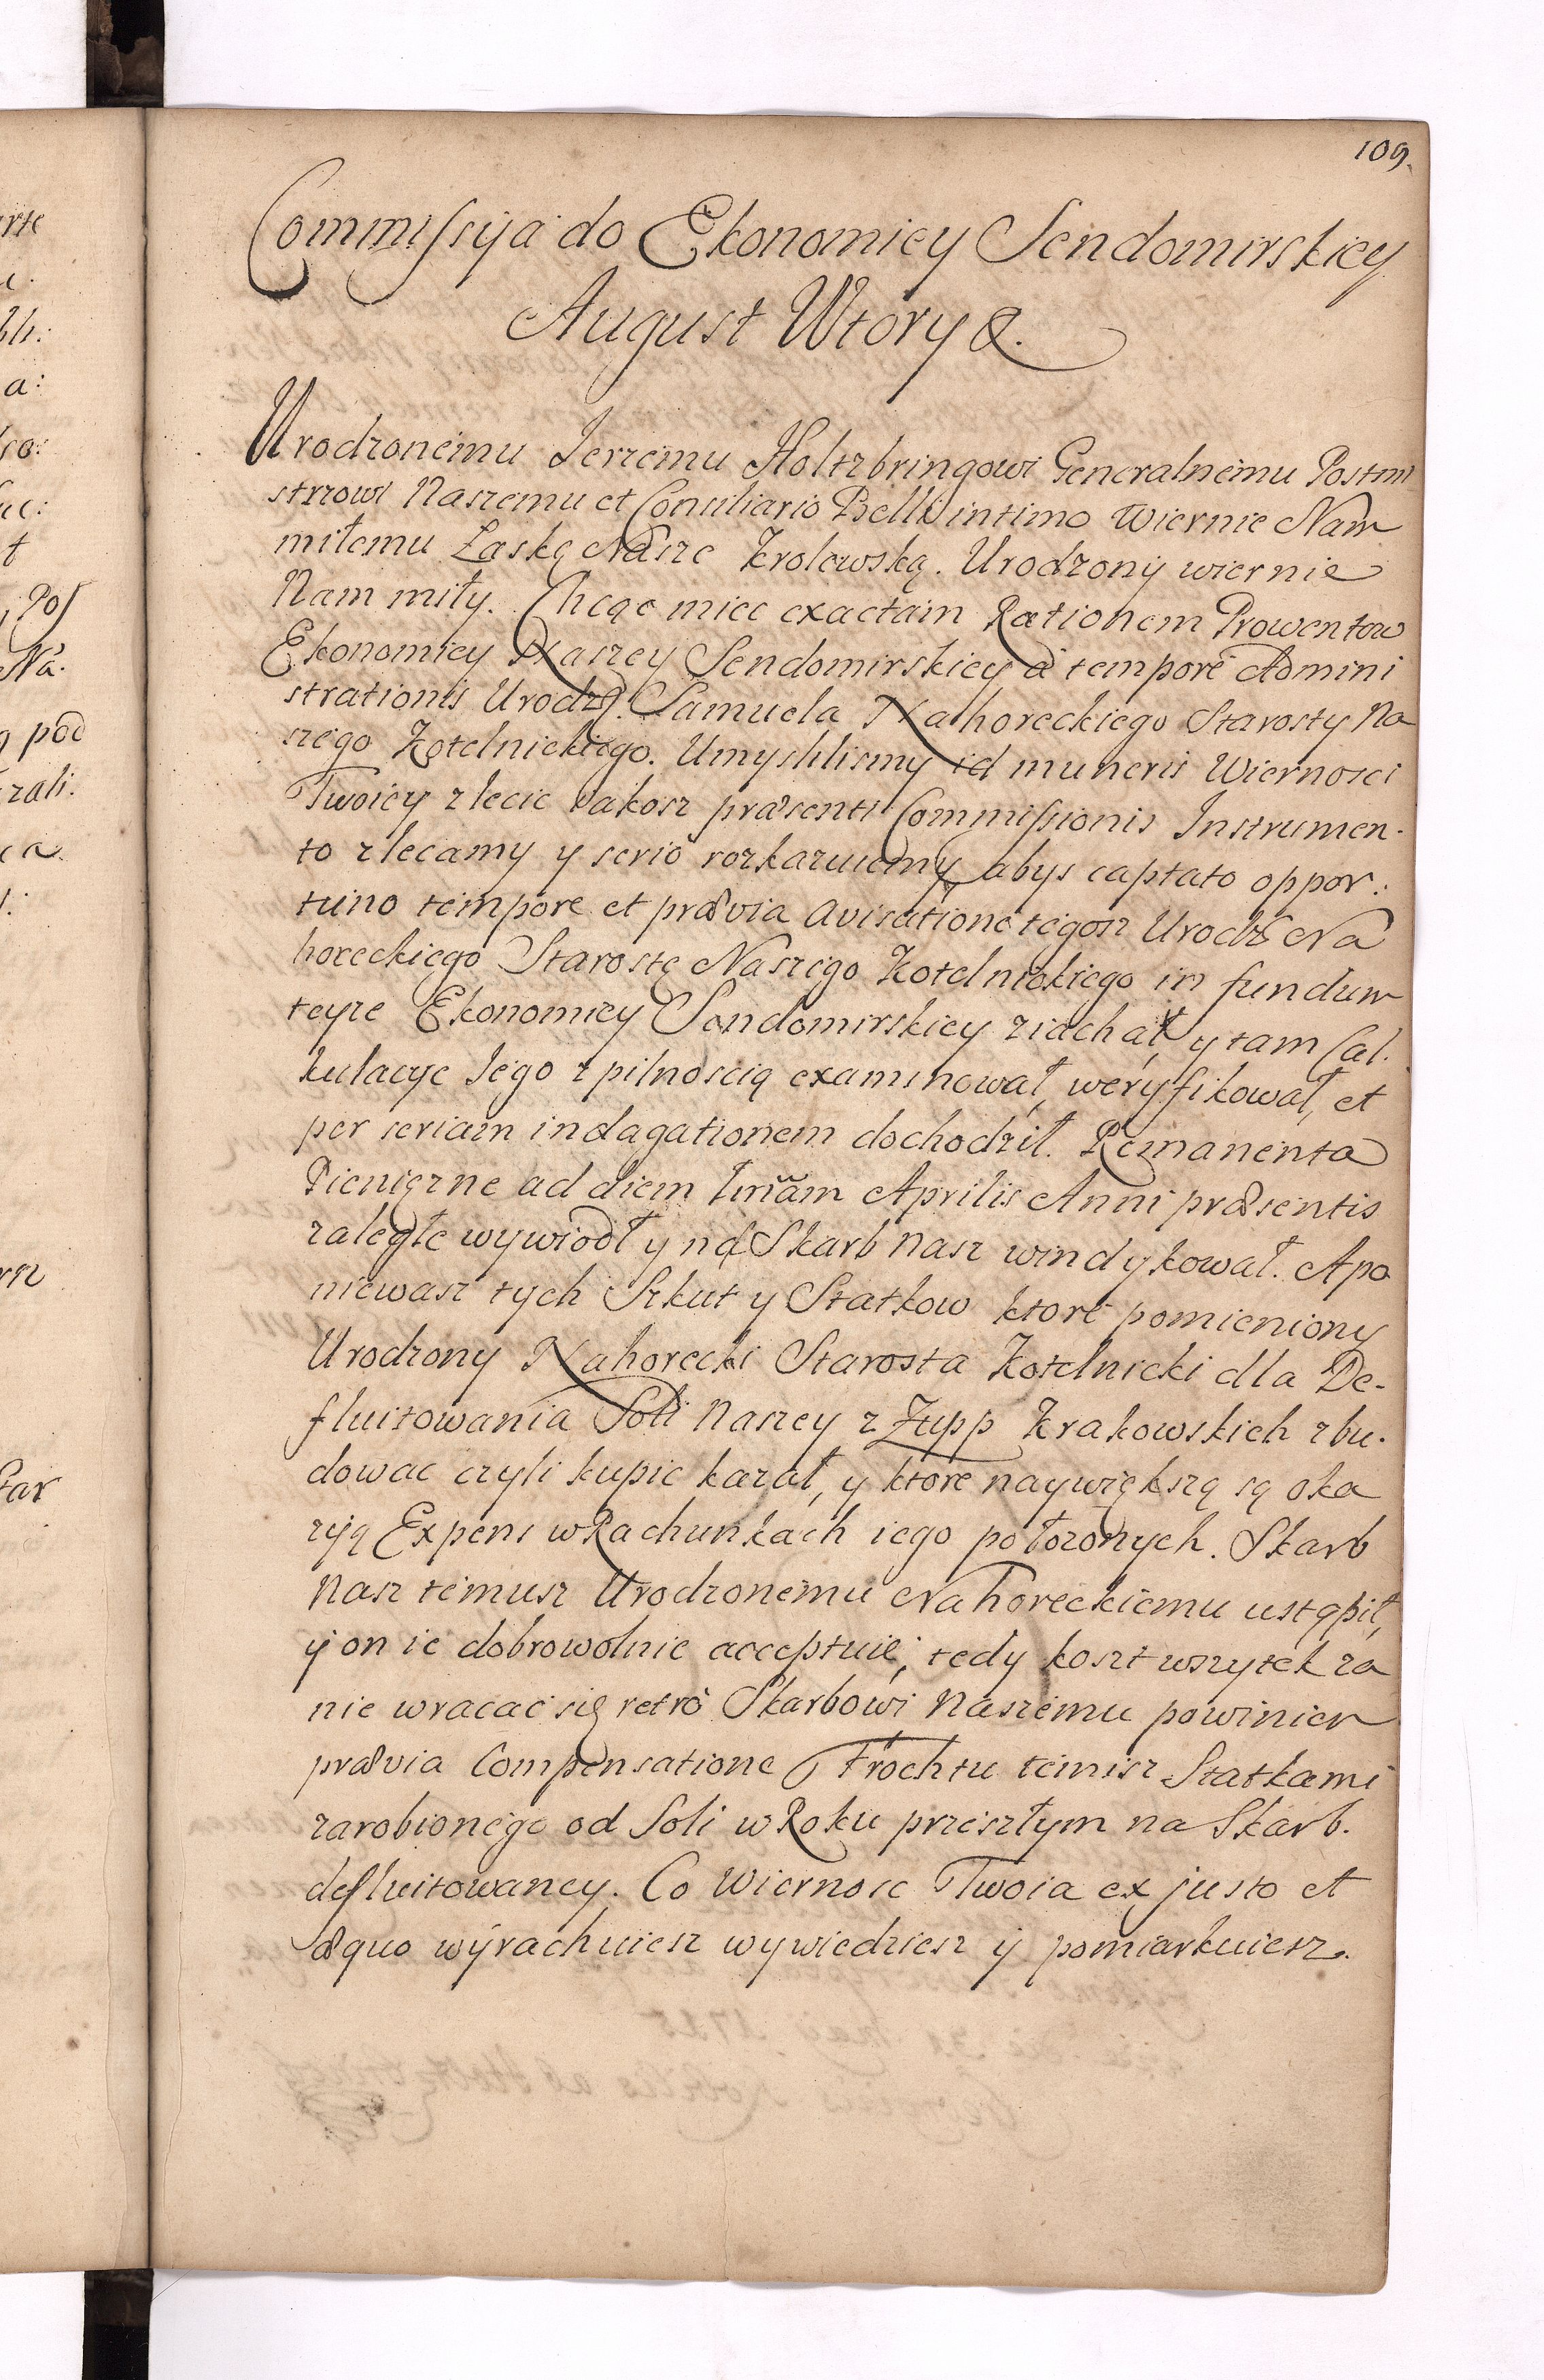 109.
Commissyja do Ekonomiey Sendomirskiey
August Wtory &.
Urodzonemu Jerzemu Holtzbringowi Generalnemu Postmi
strzowi Naszemu et Consiliario Belli intimo Wiernie Nam
miłemu Łaskę Nasze Krolewską. Urodzony wiernie
Nam miły. Chcąc miec exactam Rationem Prowentow
Ekonomiey Naszey Sendomirskiey à tempore Admini
strationis Urodzo. Samuela Nahoreckiego Starosty Na
szego Kotelnickiego. Umyslilismy id muneris Wiernosci
Twoiey zlecic Jakosz præsenti Commissionis Instrumen.
to zlecamy y serio rozkazuiemy abys captato oppor:
tuno tempore et prævia avisatione tegosz Urodz Na
horeckiego Starostę Naszego Kotelnickiego in fundum
teyze Ekonomiey Sendomirskiey ziachał, y tam Cal.
kulacye Jego z pilnoscią examinował, weryfikował, et
per seriam indagationem dochodził. Remanenta
Pienięzne ad diem 1mam Aprilis Anni præsentis
zaległe wywiodł y na Skarb Nasz windykował. A po
niewasz tych Szkut y Statkow ktore pomieniony
Urodzony Nahorecki Starosta Kotelnicki dla De-
fluitowania Soli Naszey z Zupp Krakowskich zbu.
dowac czyli kupic kazał, y ktore naywiększą są oka
zyą Expens w Rachunkach iego połozonych. Skarb
Nasz temusz Urodzonemu Nahoreckiemu ustąpił,
y on ie dobrowolnie acceptuie; tedy koszt wszytek za
nie wracac się retro Skarbowi Naszemu powinien
prævia Compensatione Frochtu temisz Statkami
zarobionego od Soli w Roku przeszłym na Skarb.
defluitowaney. Co Wiernosc Twoia ex justo et
æquo wyrachuiesz wywiedziesz y pomiarkuiesz.